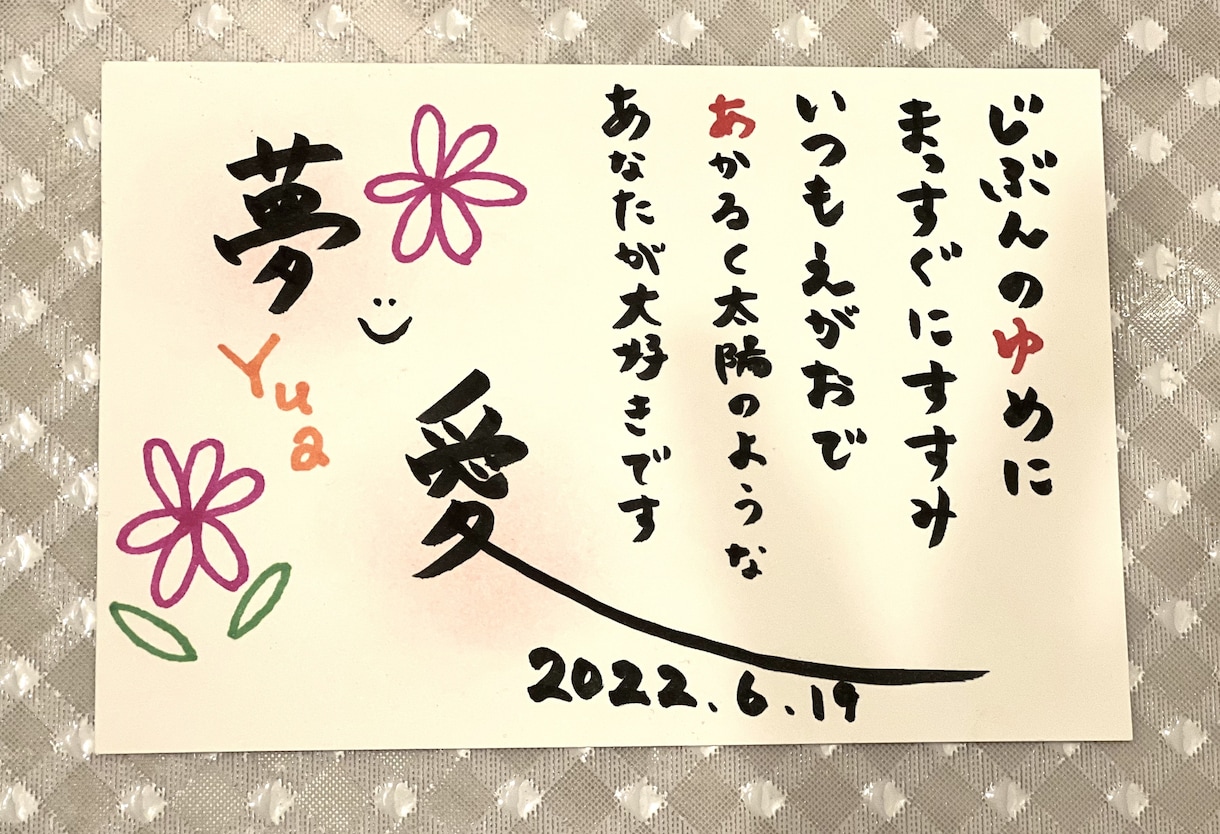 じぶんのゆめに
まっすぐにすすみ
いつもえがおで
あかるく太陽のような
あなたが大好きです
夢
愛
Yua
2022.6.19